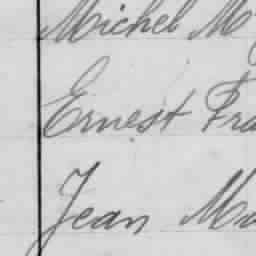 Michel M
Ernest Fra
Jean Ma